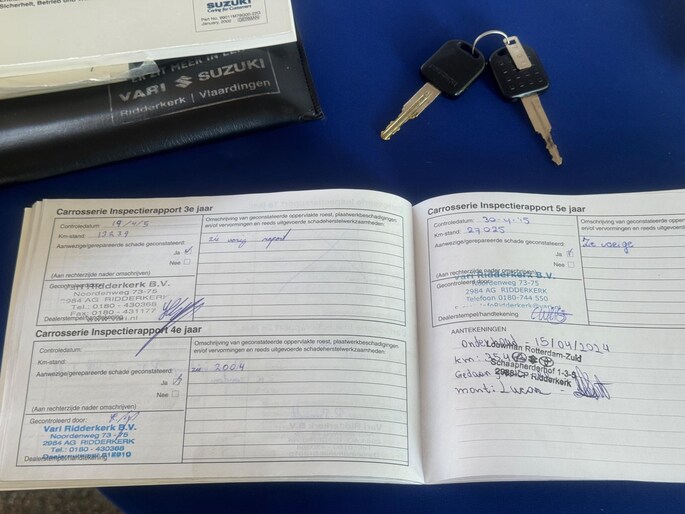 Sicherheit, Betrieb und
SUZUKI
Caring for Customers
January, 2002
GERMAN
ER ZIT MEER IN EEN
VARI SUZUKI
Ridderkerk | Vlaardingen
Carrosserie Inspectierapport 3e jaar
Controledatum:
Km-stand:
Aanwezige/gerepareerde schade geconstateerd:
Ja
Nee
(Aan rechterzijde nader omschrijven)
Gecontroleerd door:
Vari Ridderkerk B.V.
Noordenweg 73-75
2984 AG RIDDERKERK
Tel.: 0180 - 430368
Fax: 0180 - 431177
Dealerstempel/handtekening
Omschrijving van geconstateerde oppervlakte roest, plaatwerkbeschadigingen
en/of vervormingen en reeds uitgevoerde schadeherstelwerkzaamheden:
zie vorig rapport
Carrosserie Inspectierapport 4e jaar
Controledatum:
Km-stand:
Aanwezige/gerepareerde schade geconstateerd:
Ja
Nee
(Aan rechterzijde nader omschrijven)
Gecontroleerd door:
Vari Ridderkerk B.V.
Noordenweg 73-75
2984 AG RIDDERKERK
Tel.: 0180 - 430368
Dealerstempel/handtekening
Omschrijving van geconstateerde oppervlakte roest, plaatwerkbeschadigingen
en/of vervormingen en reeds uitgevoerde schadeherstelwerkzaamheden:
zie 2004
Carrosserie Inspectierapport 5e jaar
Controledatum:
Km-stand: 27025
Aanwezige/gerepareerde schade geconstateerd:
Ja
Nee
(Aan rechterzijde nader omschrijven)
Gecontroleerd door:
Vari Ridderkerk B.V.
Noordenweg 73-75
2984 AG RIDDERKERK
Telefoon 0180-744 550
Dealerstempel/handtekening
Omschrijving van geconstateerde oppervlakte roest, plaatwerkbeschadigingen
en/of vervormingen en reeds uitgevoerde schadeherstelwerkzaamheden:
Zie vorige
AANTEKENINGEN
15/04/2024
Rotterdam-Zuid
km:
Schaapherderhof 1-3-5
Gedaan
Ridderkerk
mont: Lucan